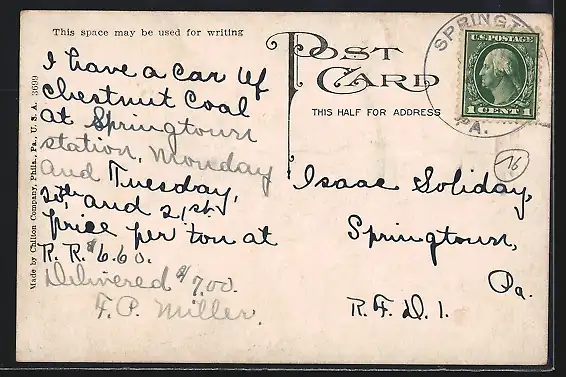 This space may be used for writing
POST CARD
THIS HALF FOR ADDRESS
SPRINGT
PA.
U.S. POSTAGE
1 CENT 1
76
I have a car of
chestnut coal
at Springtown
station, Monday
and Tuesday,
20th and 21st
price per ton at
R. R. $6.60.
Delivered $7.00.
F. P. Miller.
Isaac Soliday,
Springtown,
Pa.
R. F. D. 1.
Made by Chilton Company, Phila., Pa., U. S. A. 3699